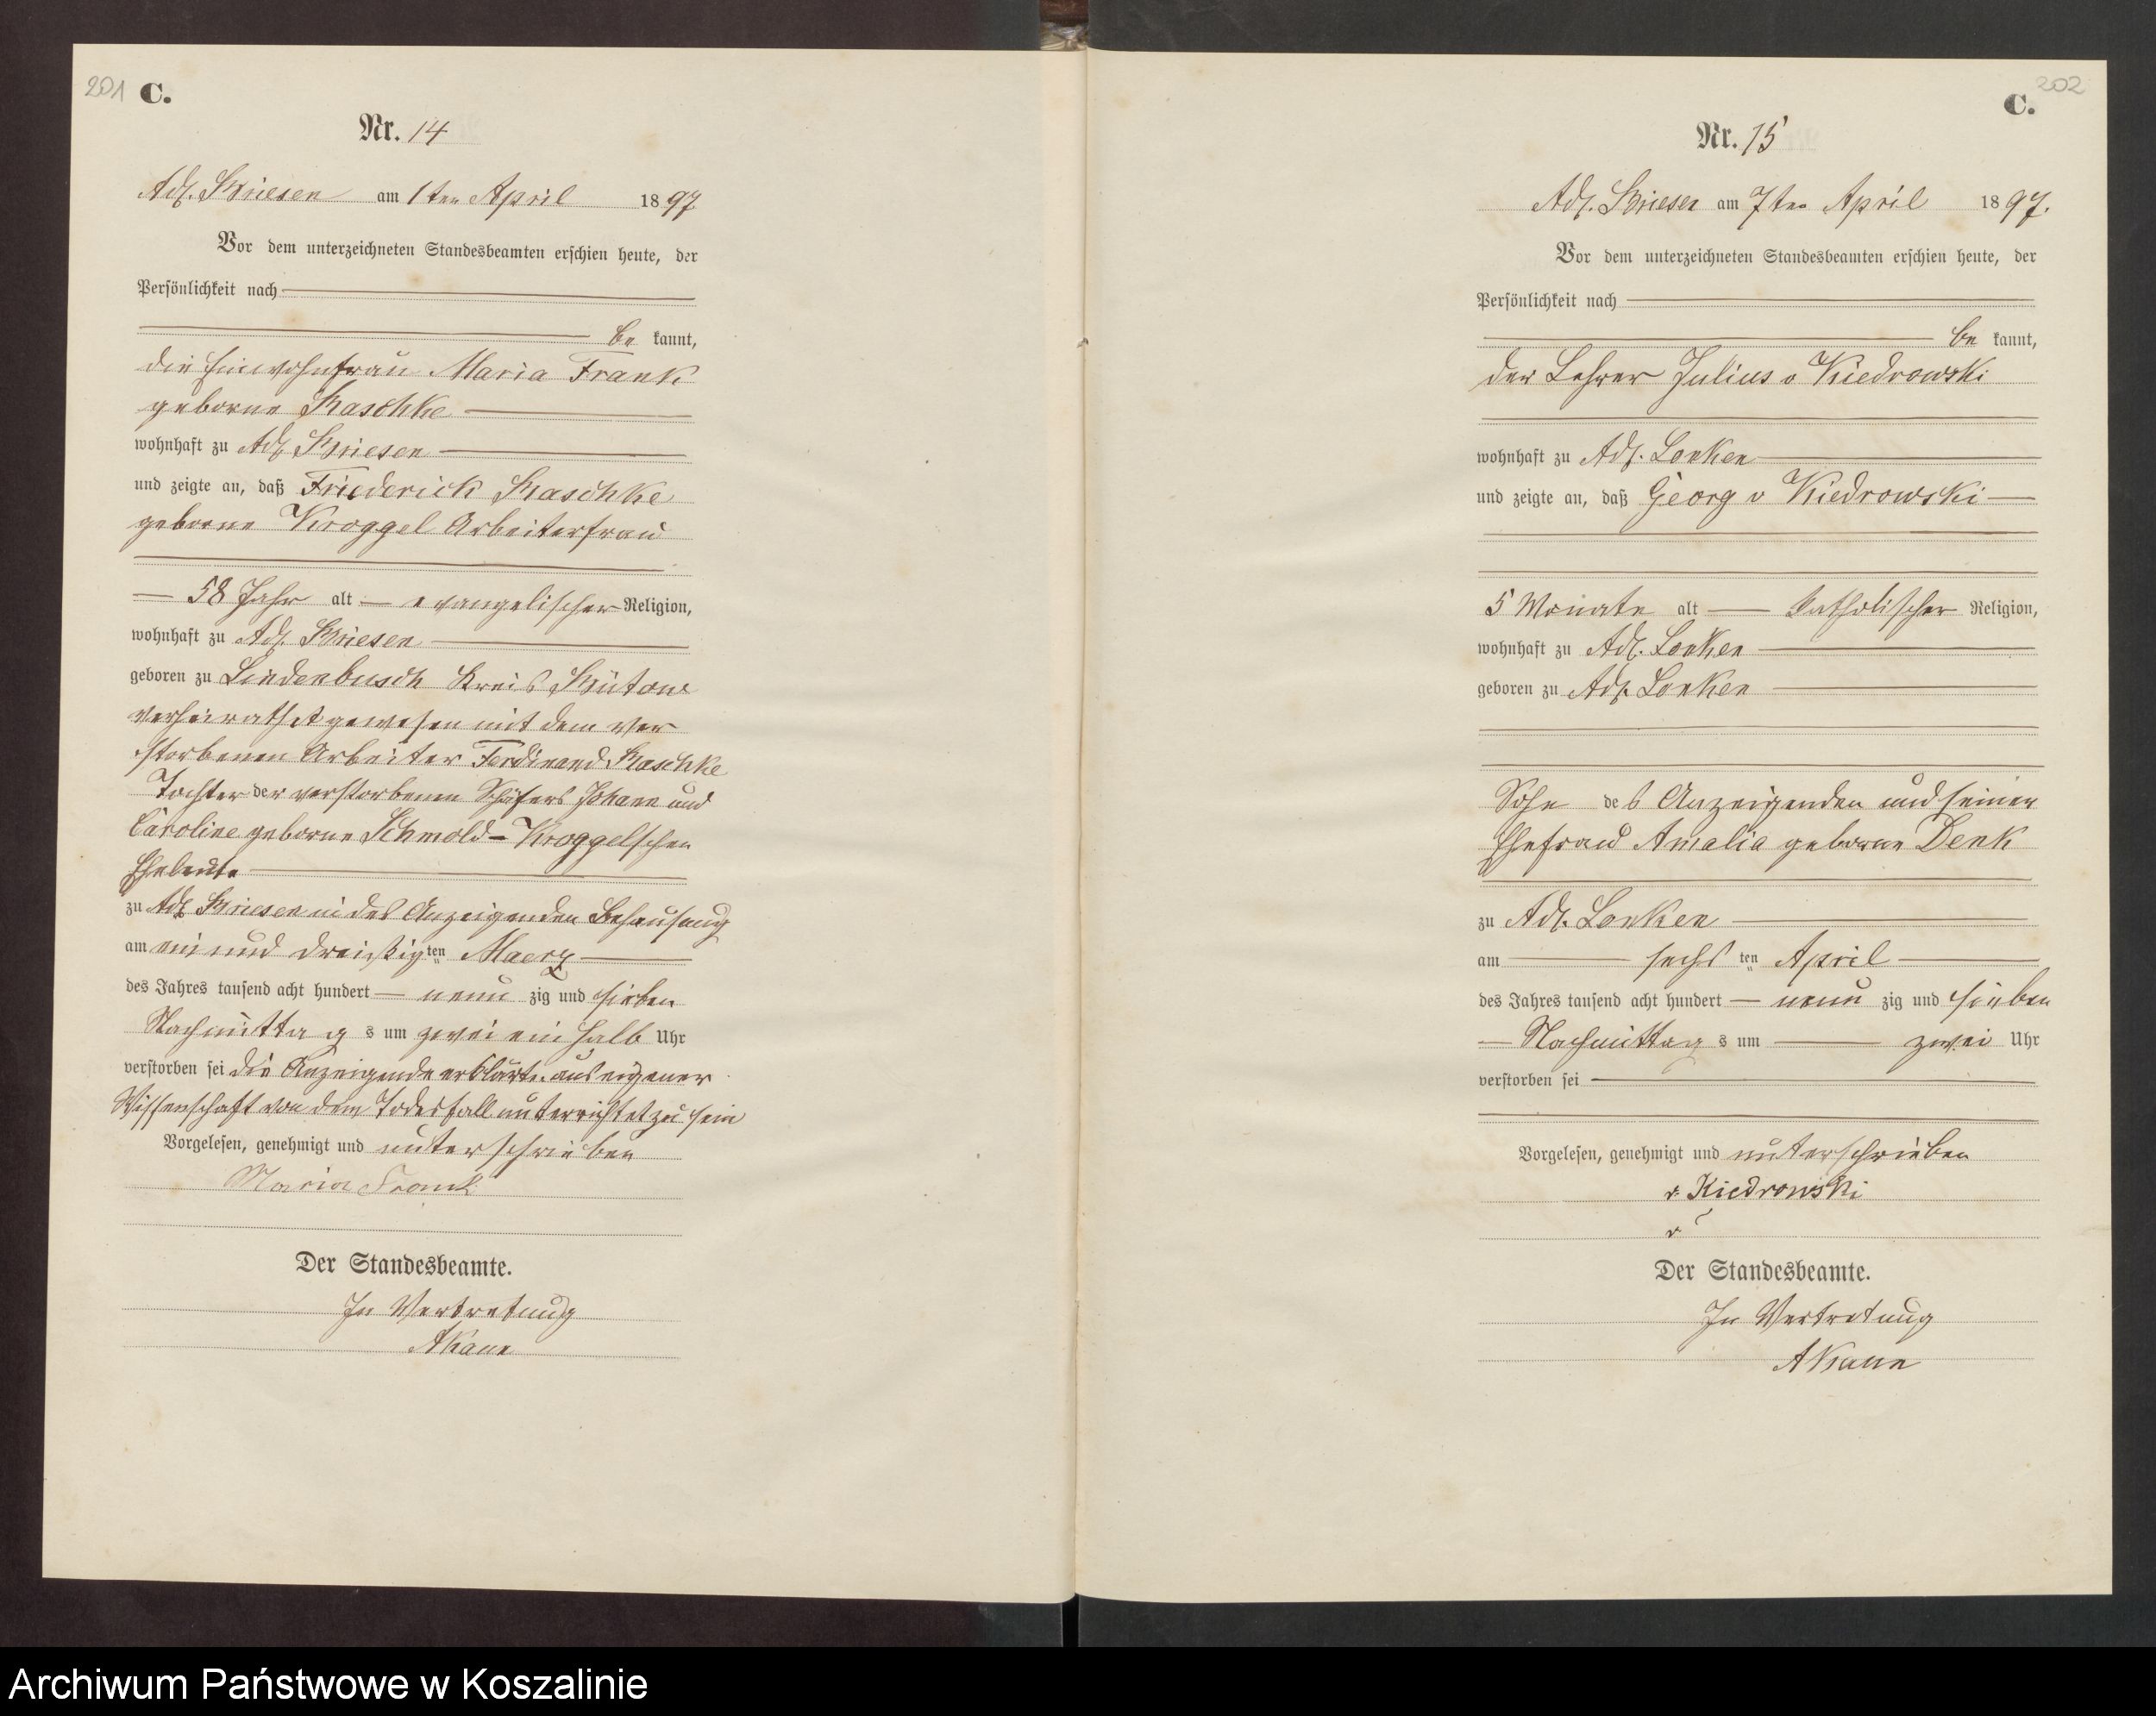 201 C.
Nr. 14
Adl. Briesen am 1ten April 1897
Vor dem unterzeichneten Standesbeamten erschien heute, der
Persönlichkeit nach
be kannt,
die Einwohnfrau Maria Frank
geborne Raschke
wohnhaft zu Adl. Briesen
und zeigte an, daß Friederick Raschke
geborne Kroggel Arbeiterfrau
58 Jahr alt evangelischer Religion,
wohnhaft zu Adl. Briesen
geboren zu Lindenbusch Kreis Bütow
verheirathet gewesen mit dem ver
storbenen Arbeiter Ferdinand Raschke
Tochter der verstorbenen Schäfers Johann und
Caroline geborne Schmold-Kroggelschen
Eheleute
zu Adl Briesen in des Anzeigenden Behausung
am ein und dreißigten Maerz
des Jahres tausend acht hundert neun zig und sieben
Nachmittags um zwei ein halb Uhr
verstorben sei die Anzeigende erklärte aus eigener
Wissenschaft von dem Todesfall unterrichtet zu sein
Vorgelesen, genehmigt und unterschrieben
Maria Frank
Der Standesbeamte.
In Vertretung
C. 202
Nr. 15
Adl. Briesen am 7ten April 1897.
Vor dem unterzeichneten Standesbeamten erschien heute, der
Persönlichkeit nach
be kannt,
der Lehrer Julius v Kiedrowski
wohnhaft zu Adl. Lonken
und zeigte an, daß Georg v Kiedrowski
5 Monate alt katholischer Religion,
wohnhaft zu Adl. Lonken
geboren zu Adl. Lonken
Sohn des Anzeigenden und seiner
Ehefrau Amalia geborne Denk
zu Adl. Lonken
am sechsten April
des Jahres tausend acht hundert neun zig und sieben
Nachmittags um zwei Uhr
verstorben sei
Vorgelesen, genehmigt und unterschrieben
v. Kiedrowski
v
Der Standesbeamte.
In Vertretung
Archiwum Państwowe w Koszalinie